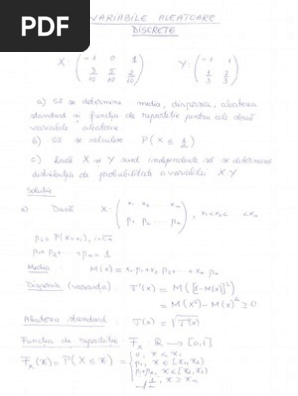 PDF
VARIABILE ALEATOARE
DISCRETE
X: ( -1 0 1
3/10 5/10 2/10 ) Y: ( -1 1
1/3 2/3 )
a) Să se determine media, dispersia, abaterea
standard și funcția de repartiție pentru cele două
variabile aleatoare
b) Să se calculeze P(X ≤ 1/2)
c) Dacă X și Y sunt independente să se determine
distribuția de probabilitate a variabilei X·Y
Soluție
a) Dacă X: ( x₁ x₂ ... xₙ
p₁ p₂ ... pₙ ), x₁<x₂< <xₙ
pᵢ = P(X=xᵢ), i=1,n
p₁+p₂+...+pₙ = 1
Media: M(X) = x₁p₁+x₂p₂+...+xₙpₙ
Dispersia (varianța): σ²(X) = M([X-M(X)]²)
= M(X²)-M(X)² ≥ 0
Abaterea standard: σ(X) = √σ²(X)
Funcția de repartiție: Fₓ: R → [0,1]
Fₓ(x) = P(X ≤ x) = { 0, x < x₁
p₁, x ∈ [x₁,x₂)
p₁+p₂, x ∈ [x₂,x₃)
1, x ≥ xₙ